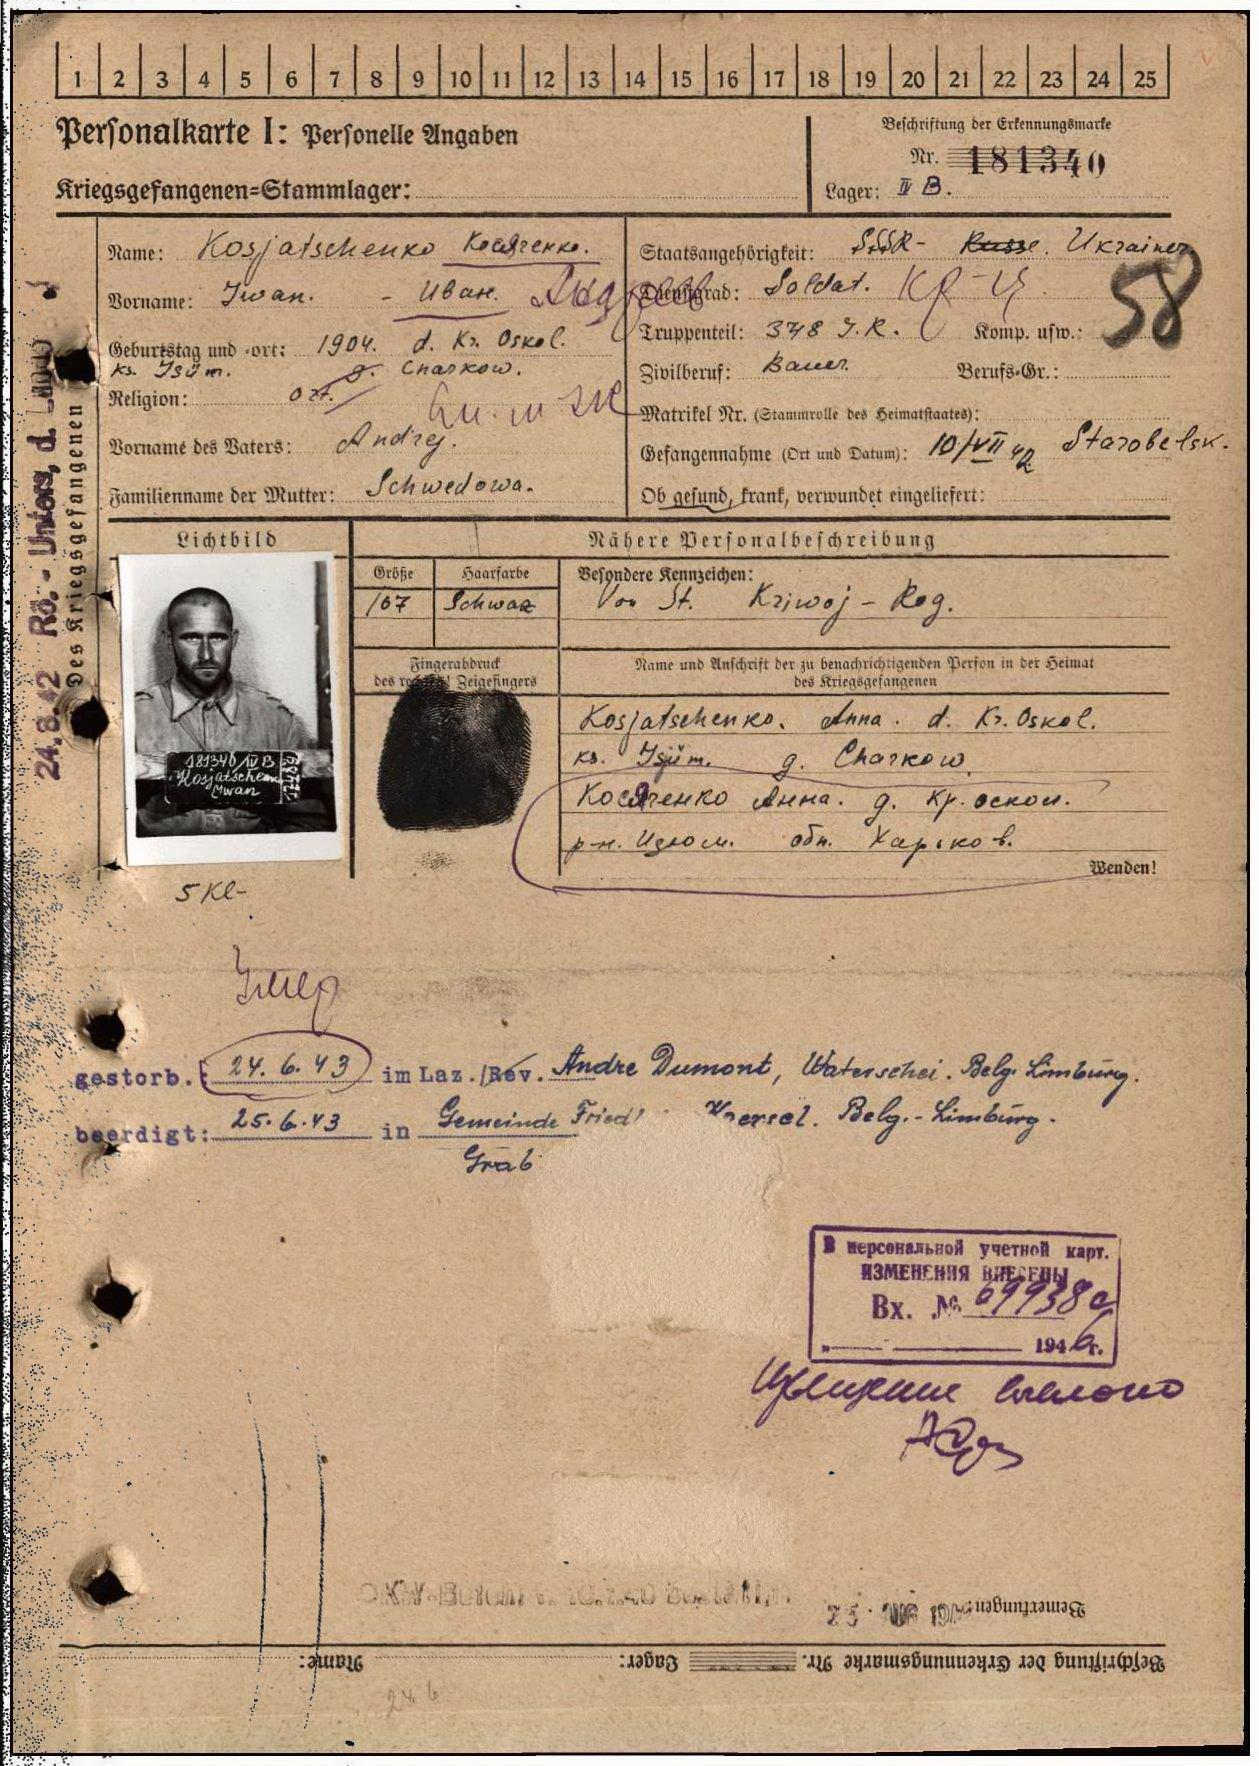 1 2 3 4 5 6 7 8 9 10 11 12 13 14 15 16 17 18 19 20 21 22 23 24 25
Personalkarte I: Personelle Angaben
Beschriftung der Erkennungsmarke
Nr. 181340
Kriegsgefangenen=Stammlager:
Lager: IV B.
Name: Kosjatschenko Косяченко.
Vorname: Iwan. - Иван. Андреев
Geburtstag und -ort: 1904. d. Kr. Oskol.
ks. Isüm. g. Charkow.
Religion: Ort.
Vorname des Vaters: Andrej.
Familienname der Mutter: Schwedowa.
Staatsangehörigkeit: SSSR - Russe. Ukrainer
Dienstgrad: Soldat. КР-Ц
58
Truppenteil: 378 I.R. Komp. usw.:
Zivilberuf: Bauer. Berufs-Gr.:
Matrikel Nr. (Stammrolle des Heimatstaates):
Gefangennahme (Ort und Datum): 10/VII 42 Starobelsk.
Ob gesund, krank, verwundet eingeliefert:
24.8.42 Rö.-Unters. d. Lung
Des Kriegsgefangenen
Lichtbild
Nähere Personalbeschreibung
Größe Haarfarbe Besondere Kennzeichen:
167 Schwaz Von St. Kriwoj-Rog.
Fingerabdruck
des rechten Zeigefingers
Name und Anschrift der zu benachrichtigenden Person in der Heimat
des Kriegsgefangenen
Kosjatschenko. Anna. d. Kr. Oskol.
ks. Isjüm. g. Charkow
Косяченко Анна. д. Кр. оскол.
р-н. Изюм. обл. Харьков.
Wenden!
181340 IV B
Kosjatschenk
Iwan
5 Kl-
Умер
gestorb.: 24.6.43 im Laz./Rev. Andre Dumont, Waterschei. Belg. Limburg.
beerdigt: 25.6.43 in Gemeinde Fried Belg.-Limburg.
Grab
В персональной учетной карт.
ИЗМЕНЕНИЯ ВНЕСЕНЫ
Вх. № 69938с
1946г.
Извещение
Bemerkungen:
Beschriftung der Erkennungsmarke Nr. Lager: Name:
24.6